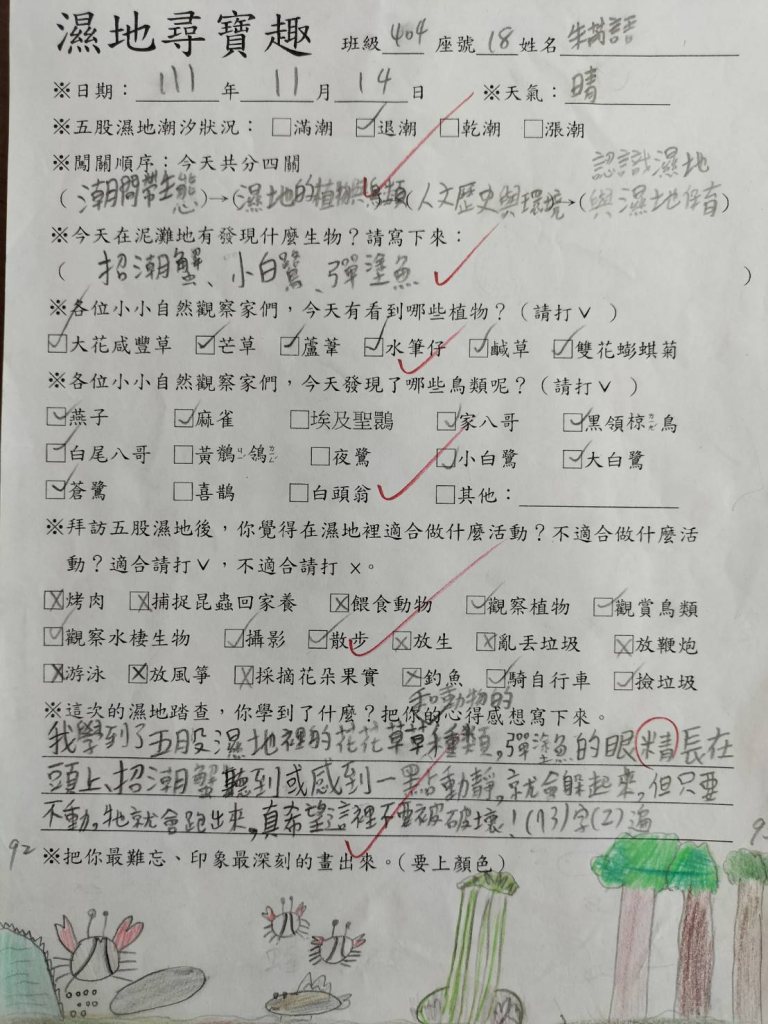 濕地尋寶趣 班級 404 座號 18 姓名 朱芮語
※日期：111年11月14日 ※天氣：晴
※五股濕地潮汐狀況：□滿潮 ☑退潮 □乾潮 □漲潮
※闖關順序：今天共分四關
(潮間帶生態)→(濕地的植物與鳥類(人文歷史與環境→(認識濕地與濕地保育)
※今天在泥灘地有發現什麼生物？請寫下來：
(招潮蟹、小白鷺、彈塗魚)
※各位小小自然觀察家們，今天有看到哪些植物？(請打∨ )
☑大花咸豐草 ☑芒草 ☑蘆葦 ☑水筆仔 ☑鹹草 ☑雙花蟛蜞菊
※各位小小自然觀察家們，今天發現了哪些鳥類呢？(請打∨ )
☑燕子 ☑麻雀 □埃及聖䴉 ☑家八哥 ☑黑領椋ㄌㄧㄤˊ鳥
☑白尾八哥 □黃鶺ㄐㄧˊ鴒ㄌㄧㄥˊ □夜鷺 ☑小白鷺 ☑大白鷺
☑蒼鷺 □喜鵲 □白頭翁 □其他：
※拜訪五股濕地後，你覺得在濕地裡適合做什麼活動？不適合做什麼活
動？適合請打∨，不適合請打 ×。
☒烤肉 ☒捕捉昆蟲回家養 ☒餵食動物 ☑觀察植物 ☑觀賞鳥類
☑觀察水棲生物 ☑攝影 ☑散步 ☒放生 ☒亂丟垃圾 ☒放鞭炮
☒游泳 ☒放風箏 ☒採摘花朵果實 ☒釣魚 ☑騎自行車 ☑撿垃圾
※這次的濕地踏查，你學到了什麼？把你的心得感想寫下來。
和動物的
我學到了五股濕地裡的花花草草種類，彈塗魚的眼精長在
頭上、招潮蟹聽到或感到一點動靜，就會躲起來，但只要
不動，牠就會跑出來，真希望這裡不要被破壞！(73)字(2)遍
92
※把你最難忘、印象最深刻的畫出來。(要上顏色)